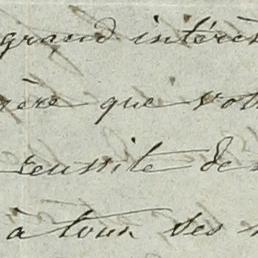 grand intérês
ère que votr
reussite de
à tous ses